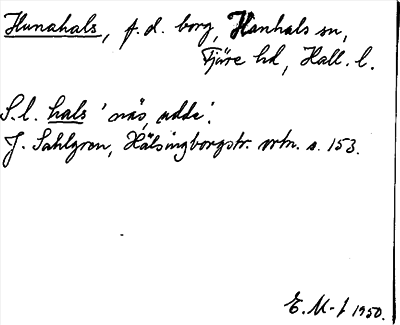 Hunahals, f.d. borg, Hanhals sn,
Fjäre hd, Hall. l.
S.l. hals 'näs, udde'.
J. Sahlgren, Hälsingborgstr. ortn. s. 153.
E. M-f 1950.